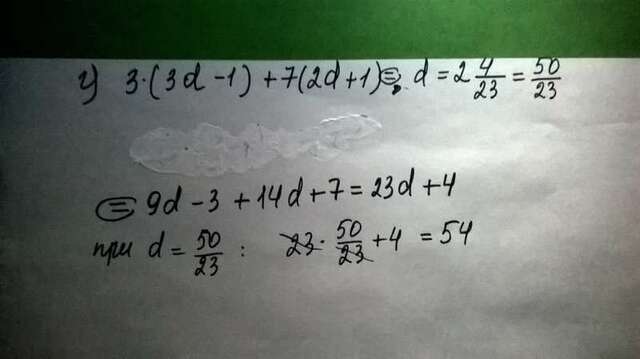 г) 3·(3d-1)+7(2d+1)=, d=2 4/23 = 50/23
= 9d-3+14d+7=23d+4
при d = 50/23 : 23· 50/23 +4 = 54